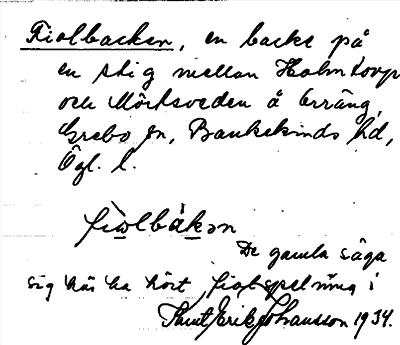 Fiolbacken, en backe på
en stig mellan Holmtorp
och Mörtsveden å terräng,
Grebo sn, Bankekinds hd,
Ögl. l.
fiòlbákən
De gamla säga
sig här ha hört fiolspelning i
Knut Erik Johansson 1934.